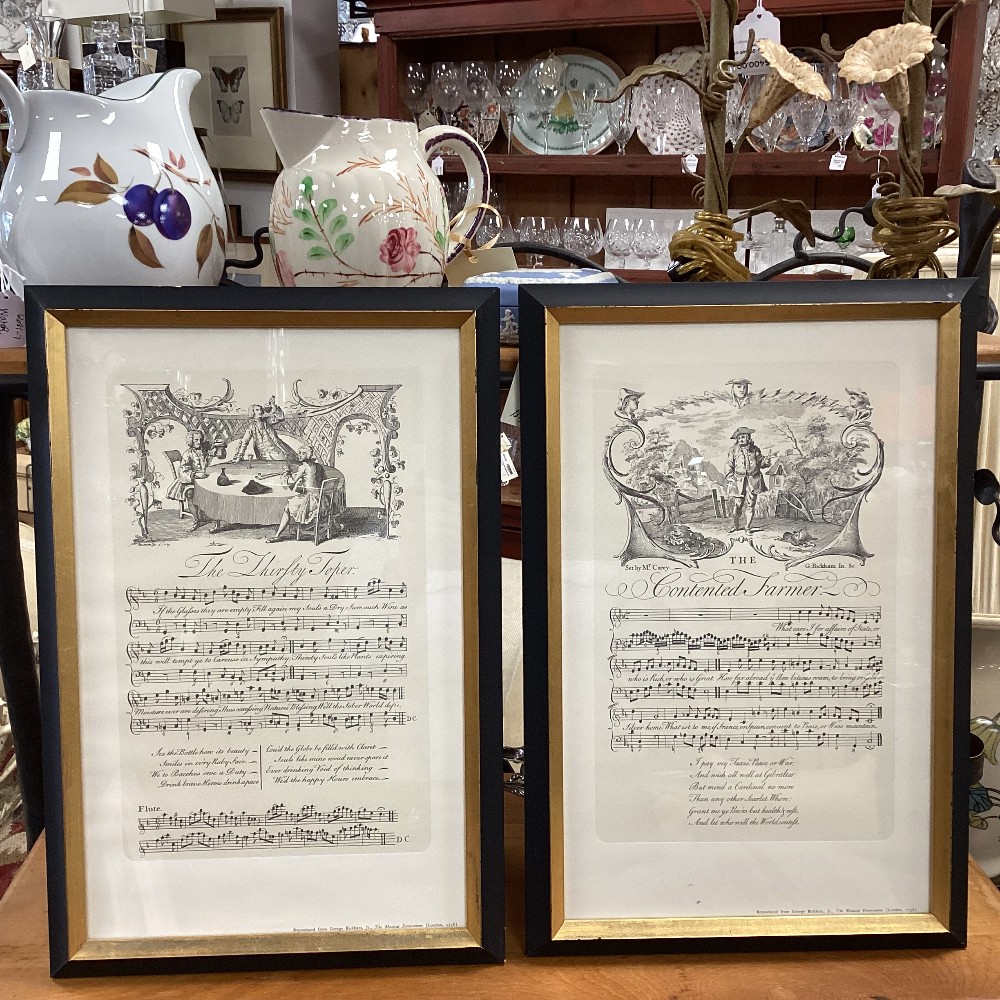 The Thirsty Toper.
If the Glasses they are empty Fill again my Souls a Dry, Sure such Wine as
this will tempt ye to Carouse in Sympathy. Thirsty Souls like Plants expiring
Moisture ever are desiring Thus carefsing Natures Blefsing Will the Sober World
D C
See the Bottle how its beauty
Smiles in every Ruby Face
We to Bacchus owe a Duty
Drink brave Heroes drink apace
Cou'd the Globe be fill'd with Claret
Souls like mine woud never spare it
Ever drinking Void of thinking
Wou'd the happy Hours embrace
Flute.
D C
Reproduced from George Bickham, Jr., The Musical Entertainer (London, 1738)
Set by Mr. Carey
THE
G. Bickham In. Sc
Contented Farmer
What care I for affairs of State, or
who is Rich, or who is Great How far abroad ye Ambitious roam, to bring or
Silver home. What ist to me if France, or Spain consent to Peace, or War maintain.
I pay my Taxes Peace, or War,
And wish all well at Gibraltar
But mind a Cardinal no more
Than any other Scarlet Whore:
Grant me ye Pow'rs but health & rest,
And let who will the World contest.
Reproduced from George Bickham, Jr., The Musical Entertainer (London, 1738)